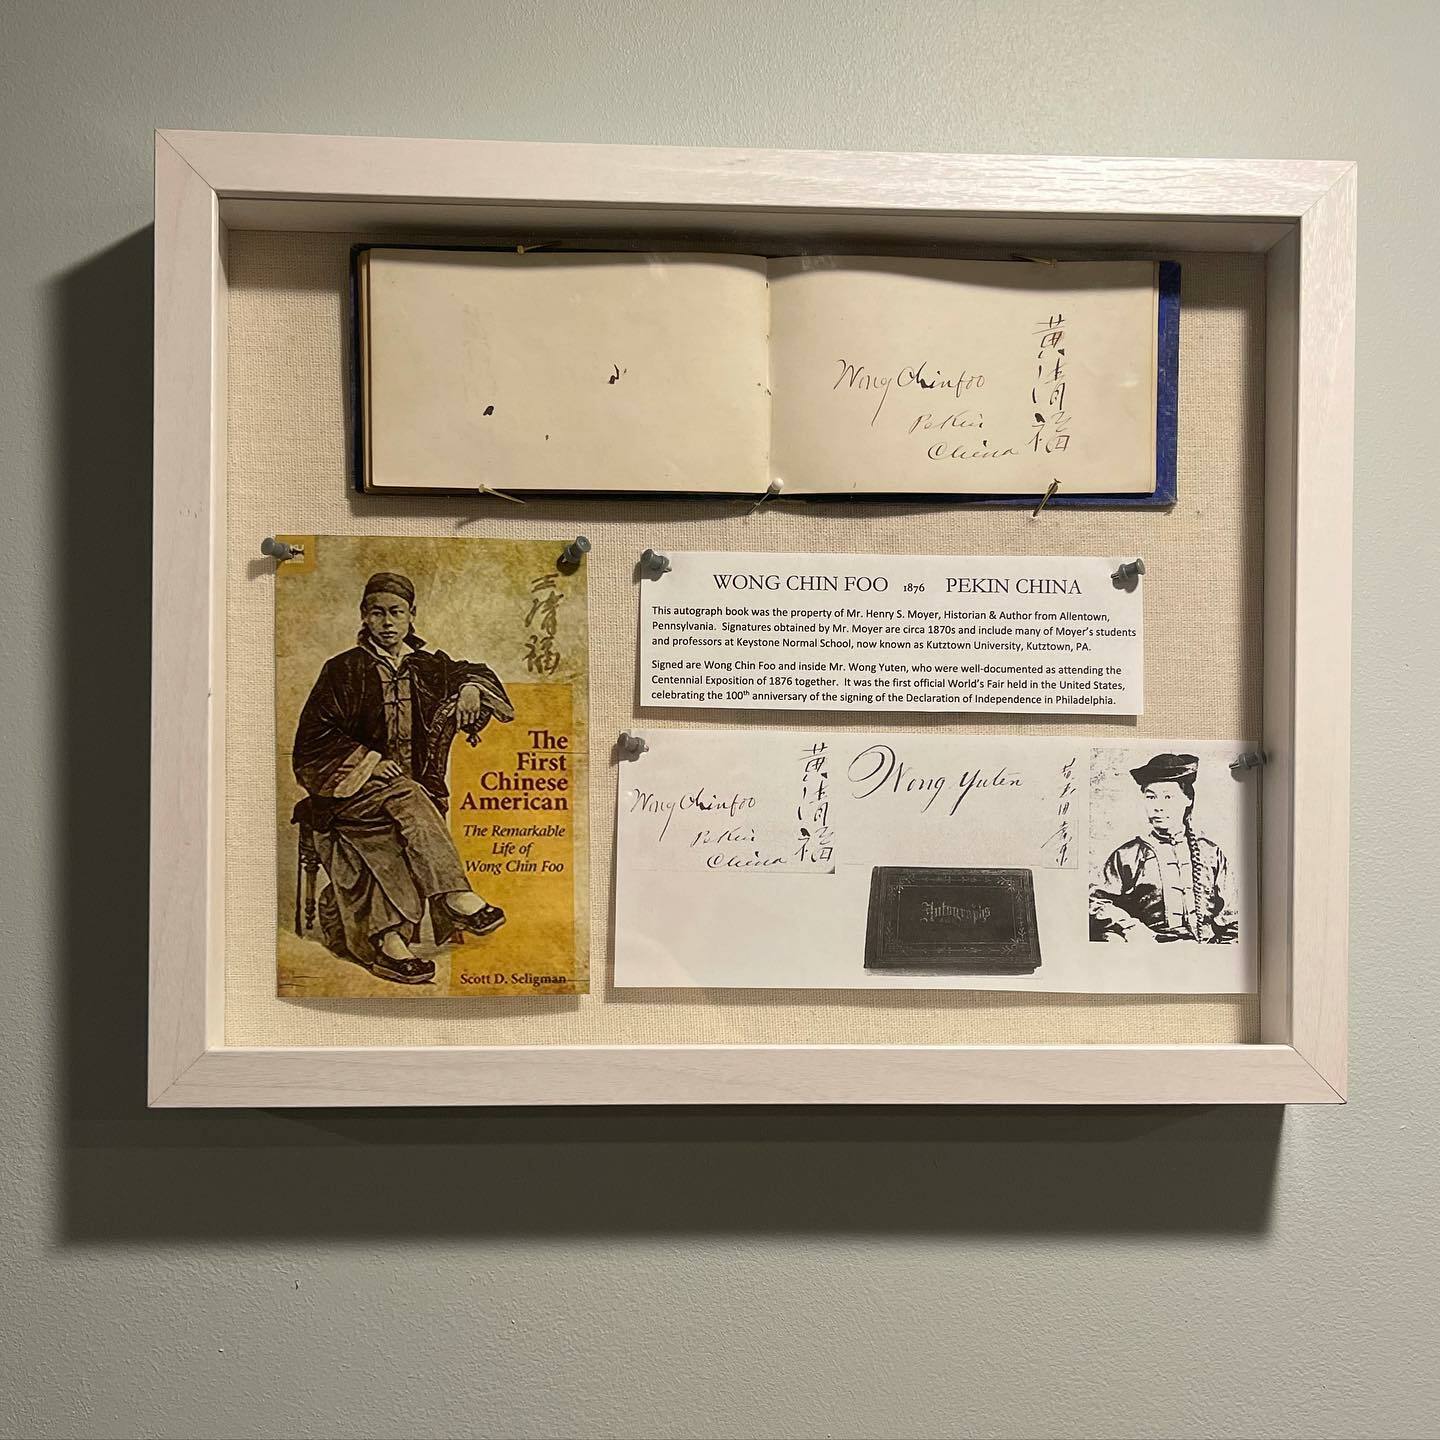 Wong Chin foo
Pekin
China
黃清福
王清福
The
First
Chinese
American
The Remarkable
Life of
Wong Chin Foo
Scott D. Seligman
WONG CHIN FOO 1876 PEKIN CHINA
This autograph book was the property of Mr. Henry S. Moyer, Historian & Author from Allentown,
Pennsylvania. Signatures obtained by Mr. Moyer are circa 1870s and include many of Moyer's students
and professors at Keystone Normal School, now known as Kutztown University, Kutztown, PA.
Signed are Wong Chin Foo and inside Mr. Wong Yuten, who were well-documented as attending the
Centennial Exposition of 1876 together. It was the first official World's Fair held in the United States,
celebrating the 100th anniversary of the signing of the Declaration of Independence in Philadelphia.
Wong Chin foo
Pekin
China
黃清福
Wong Yuten
Autographs